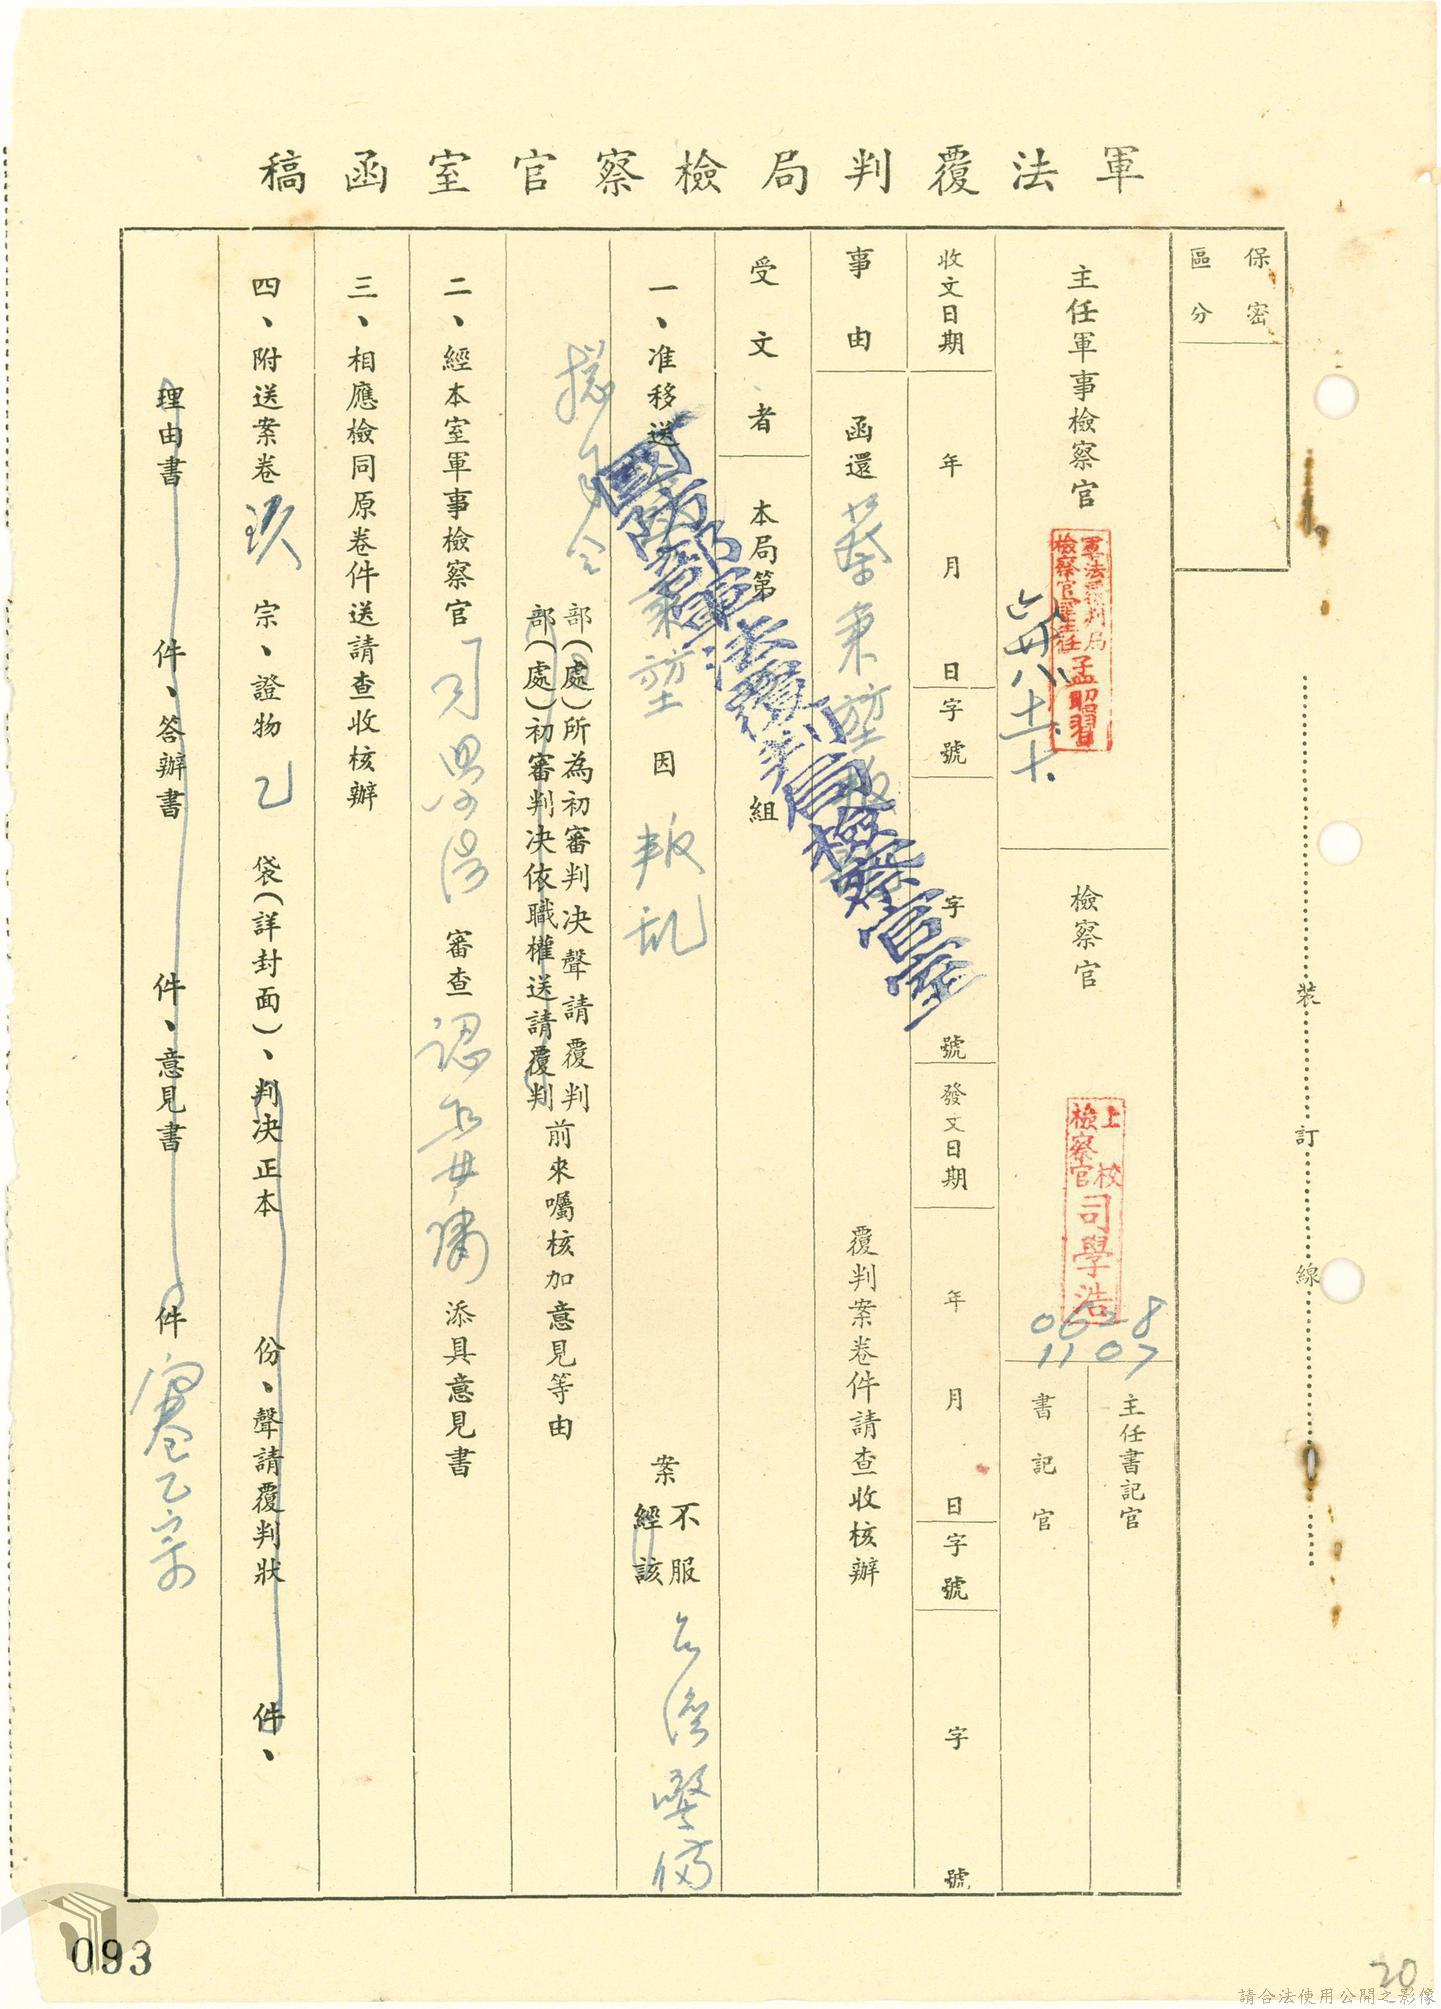 軍法覆判局檢察官室函稿
保密區分
主任軍事檢察官
軍法覆判局檢察官室主任孟昭習
檢察官
上校檢察官司學浩
0628
1107
主任書記官
書記官
收文日期 年 月 日 字號 字 號 發文日期 年 月 日 字號 字 號
事由 函還 蔡秉堃叛亂 覆判案卷件請查收核辦
受文者 本局第 組
國防部軍法覆判局檢察官室
一、准移送 蔡秉堃 因 叛乱 案 不服 經該 台灣警備
總司令 部(處)所為初審判決聲請覆判 部(處)初審判決依職權送請覆判 前來囑核加意見等由
二、經本室軍事檢察官 司學浩 審查 認為毋庸 添具意見書
三、相應檢同原卷件送請查收核辦
四、附送案卷 玖 宗、證物 乙 袋(詳封面)、判決正本 份、聲請覆判狀 件、
理由書 件、答辯書 件、意見書 件 審卷乙宗
裝訂線
093
20
請合法使用公開之影像